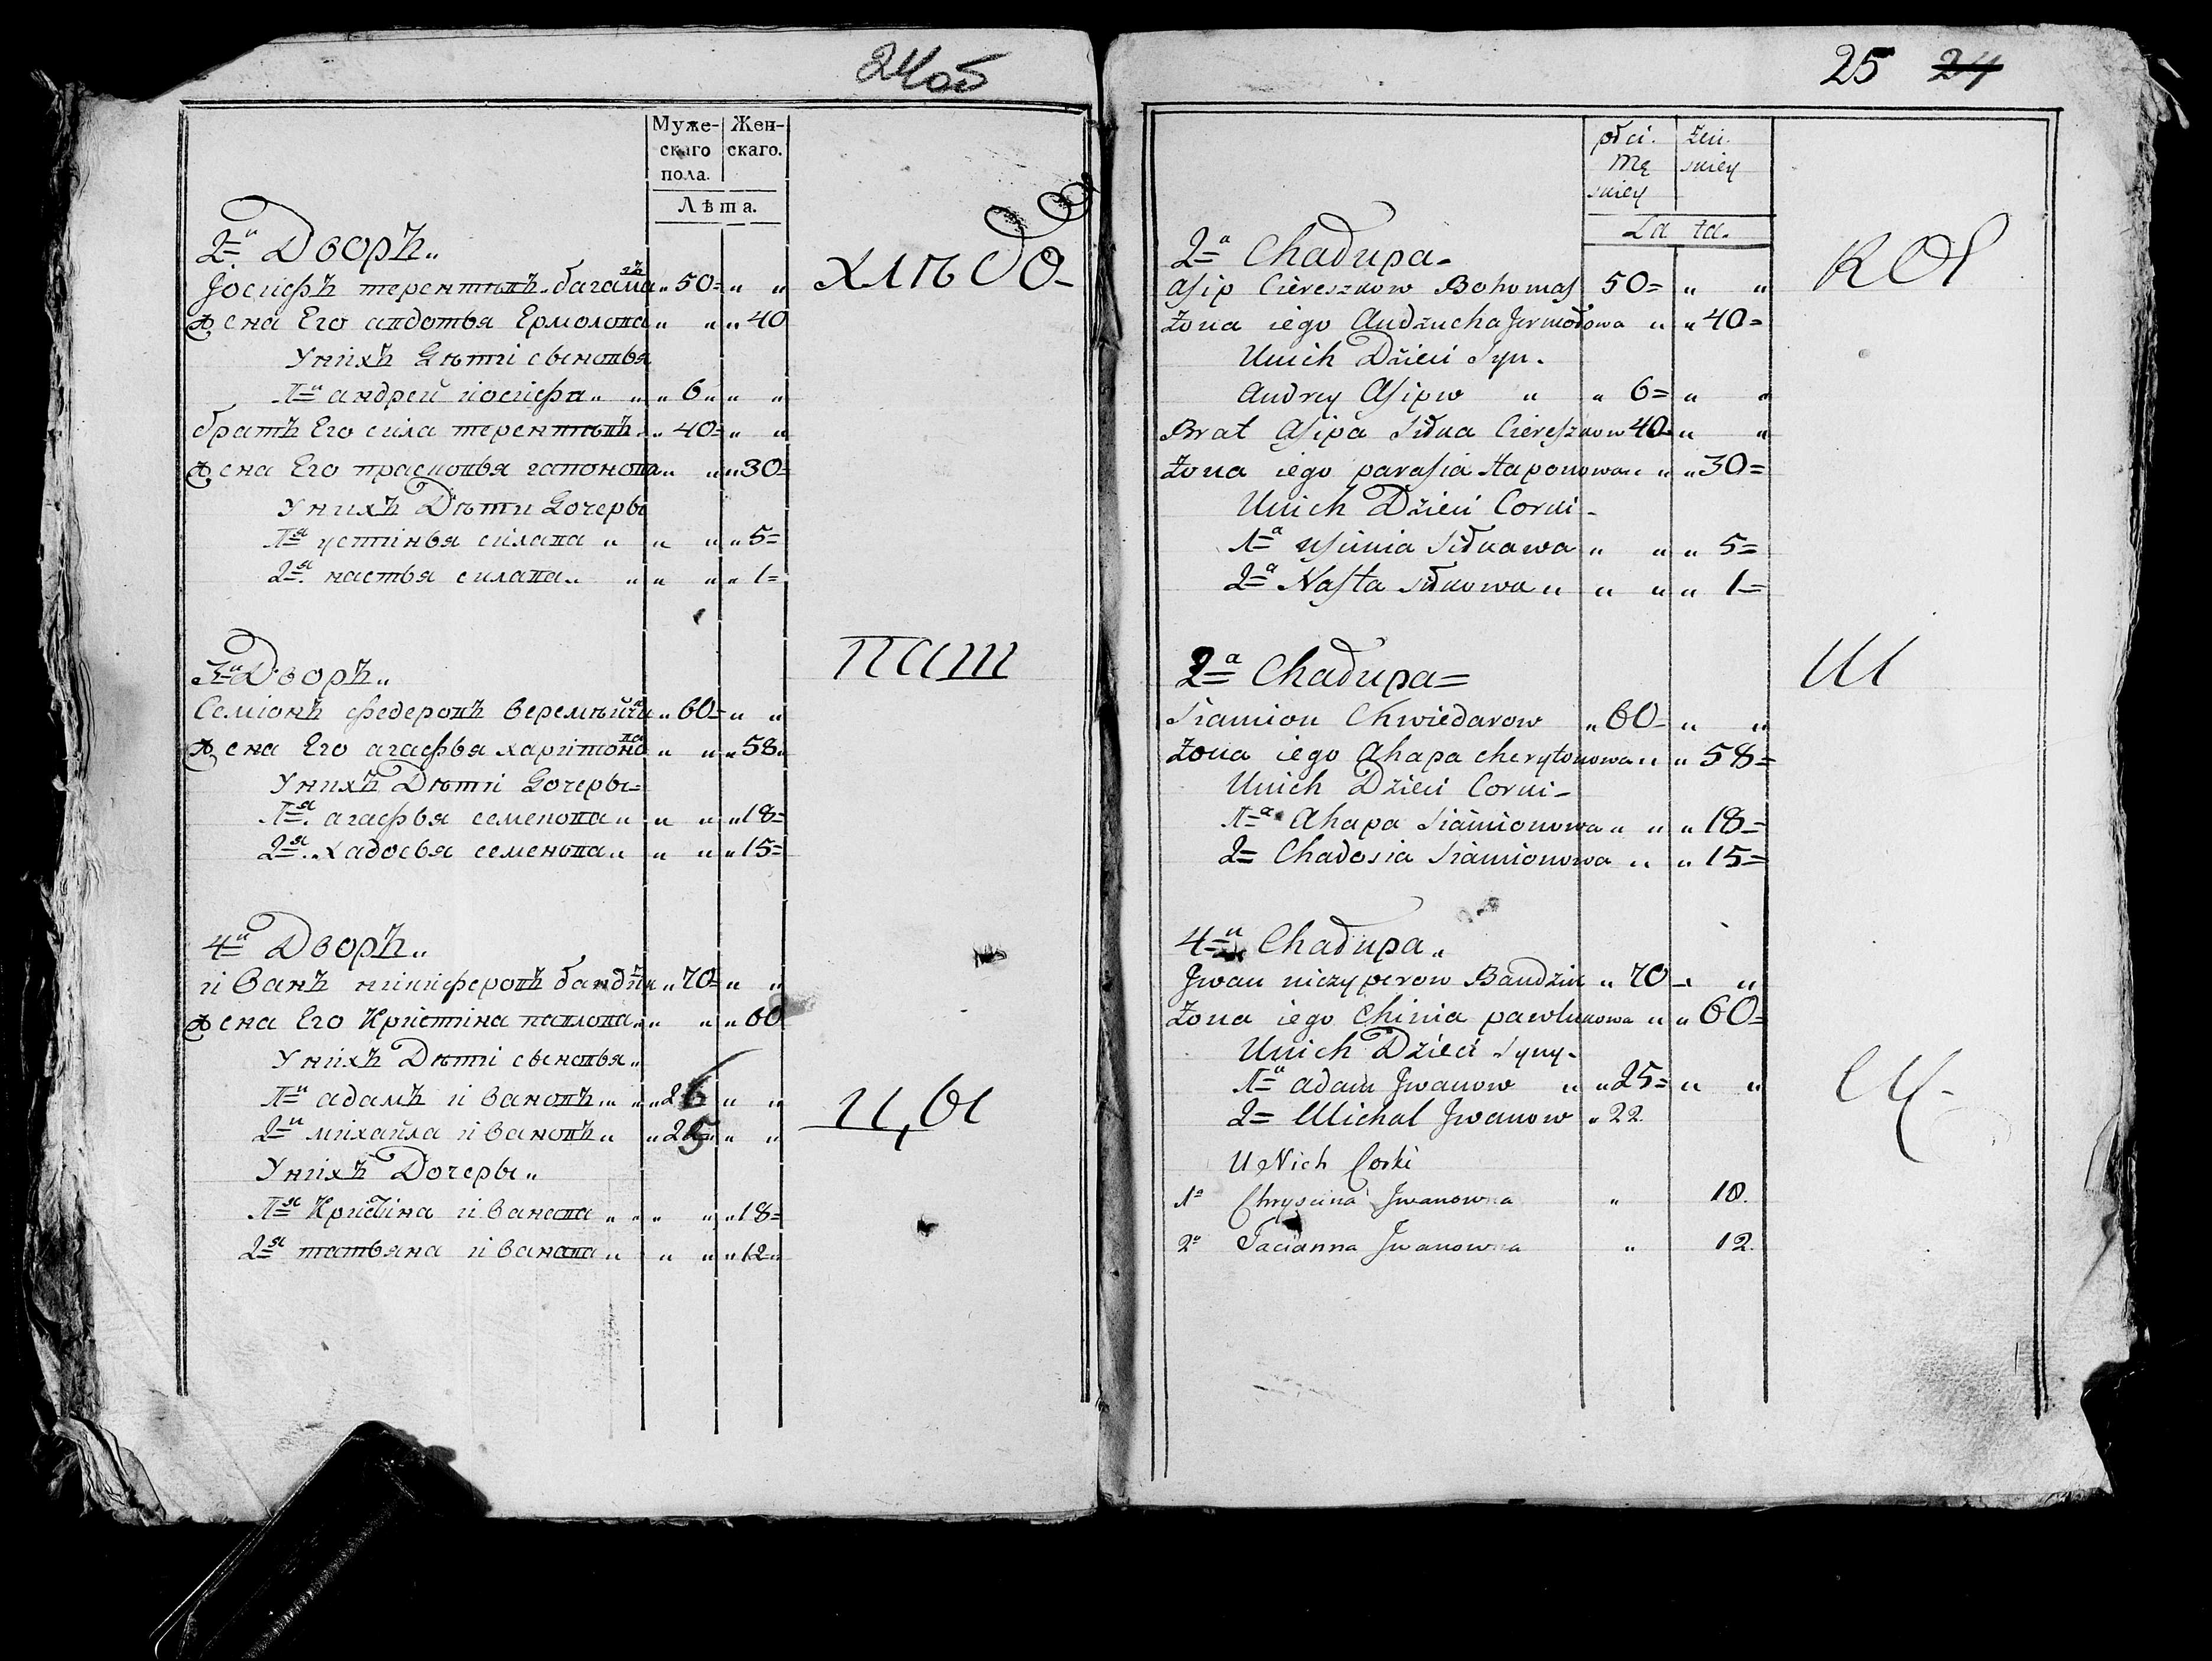 24об
Муже- Жен-
скаго скаго.
пола.
Лѣта.
2й Дворъ
Іосифъ терентьевъ багамазъ 50
Жена Его авдотья Ермолова 40
Унихъ Дѣти сыновья
1й андрей иосифа 6
братъ Его сила терентьевъ 40
Жена Его прасковья гапонова 30
Унихъ Дѣти Дочеры
1я устинья силава 5
2я настья силава 1
3й Дворъ
Семіонъ федеровъ веремѣйчи 60
Жена Его агафья харитонова 58
Унихъ Дѣти Дочеры
1я агафья семенова 18
2я хадосья семенова 15
4й Дворъ
иванъ никиферовъ бандз 70
Жена Его Кристина павлова 60
Унихъ Дѣти сыновья
1й адамъ ивановъ 26
2й михайла ивановъ 25
Унихъ Дочеры
1я Кристина иванава 18
2я татьяна иванава 12
хлѣбо-
паш
цы
25 24
płci. żeń.
mę skiey
skiey
La ta.
2a Chadupa
Asip Ciereszkow Bohomas 50
Żona iego Audzucha Jermołowa 40
Unich Dzieci Syn
Andrey Asipow 6
Brat Asipa Siłka Ciereszkow 40
Żona iego parasia Haponowa 30
Unich Dzieci Corki
1a Uscinia Siłkawa 5
2a Nasta Siłkowa 1
2a Chadupa
Siamion Chwiedarow 60
Żona iego Ahapa cherytonowa 58
Unich Dzieci Corki
1a Ahapa Siamionowa 18
2 Chadosia Siamionowa 15
4a Chadupa
Jwan niczyperow Bandzik 70
Żona iego Chimia pawlukowa 60
Unich Dzieci Syny
1a adam Jwanow 25
2 Michal Jwanow 22
U Nich Corki
1a Chryscina Jwanowna 18
2a Tacianna Jwanowna 12